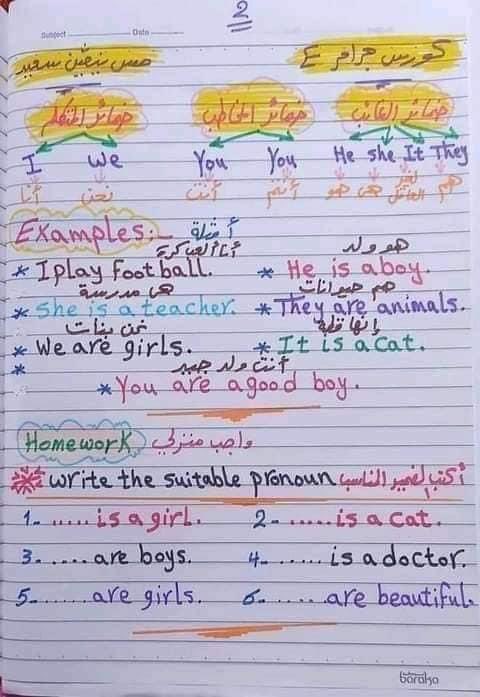 2
Subject Date
كورس جرامر E مس نيڤين سعيد
ضمائر الغائب ضمائر المخاطب ضمائر المتكلم
I We You You He she It They
أنا نحن أنت أنتم هو هى لغير العاقل هم
Examples:- أمثلة
أنا ألعب كرة هو ولد
* I play football. * He is a boy.
هى مدرسة هم حيوانات
* She is a teacher. * They are animals.
نحن بنات إنها قطة
* We are girls. * It is a cat.
*
أنت ولد جيد
* You are a good boy.
Homework واجب منزلي
* write the suitable pronoun أكتب الضمير المناسب
1- ..... is a girl. 2- ...... is a cat.
3- ..... are boys. 4- ...... is a doctor.
5- ...... are girls. 6- ...... are beautiful.
baraka